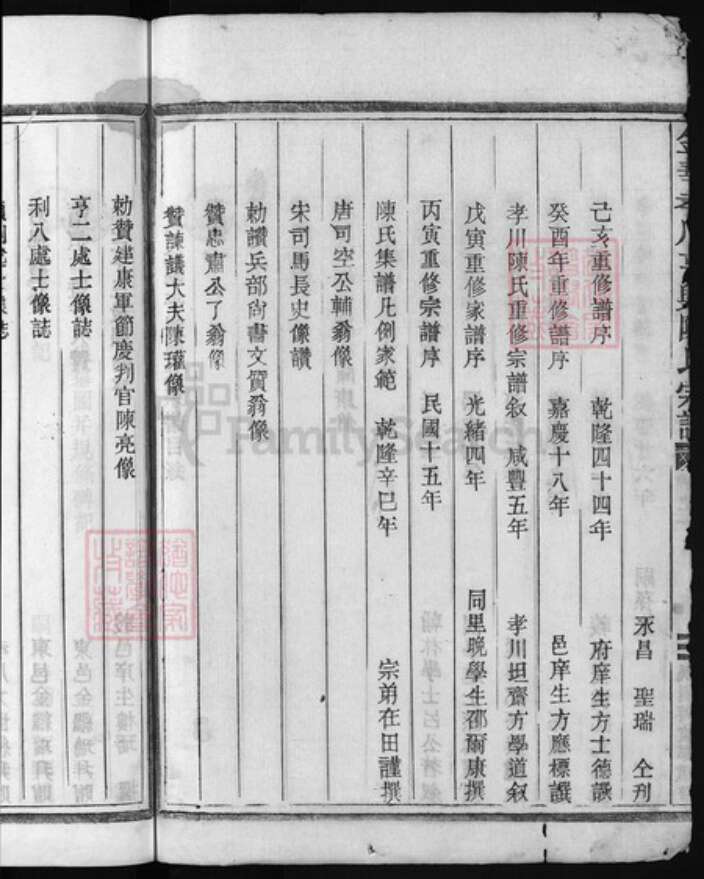 永昌 聖瑞 仝刋
己亥重修譜序 乾隆四十四年 府庠生方士德譔
癸酉年重修譜序 嘉慶十八年 邑庠生方應標譔
孝川陳氏重修宗譜叙 咸豐五年 孝川坦齋方學道叙
戊寅重修家譜序 光緒四年 同里晚學生邵爾康撰
丙寅重修宗譜序 民國十五年
陳氏集譜凡例家範 乾隆辛巳年 宗弟在田謹撰
唐司空公輔翁像
宋司馬長史像讃
勅讃兵部尙書文質翁像
贊忠肅公了翁像
贊諫議大夫陳瓘像
勅贊建康軍節慶判官陳亮像
亨二處士像誌
利八處士像誌
FamilySearch